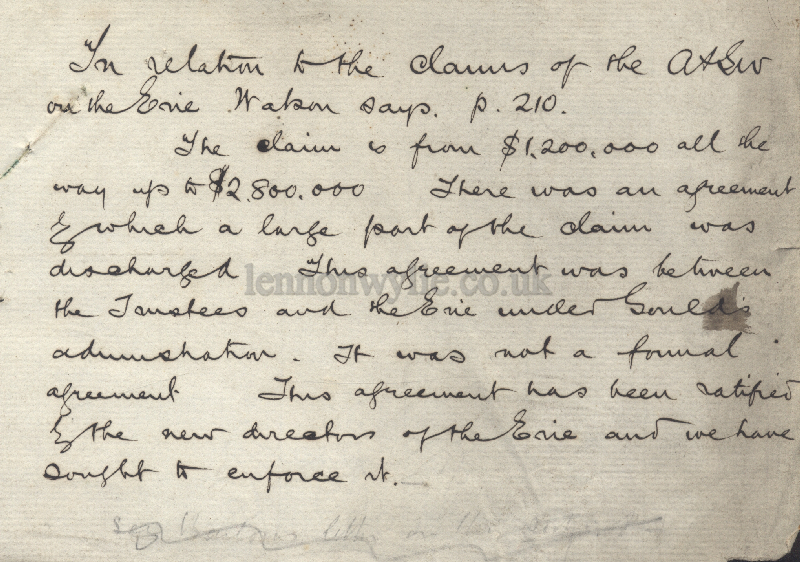 In relation to the claims of the A&GW
on the Erie Watson says. p. 210.
The claim is from $1.200.000 all the
way up to $2.800.000 There was an agreement
by which a large part of the claim was
discharged This agreement was between
lennonwylie.co.uk
the Trustees and the Erie under Gould's
administration. It was not a formal
agreement This agreement has been ratified
by the new directors of the Erie and we have
sought to enforce it.
letter on the